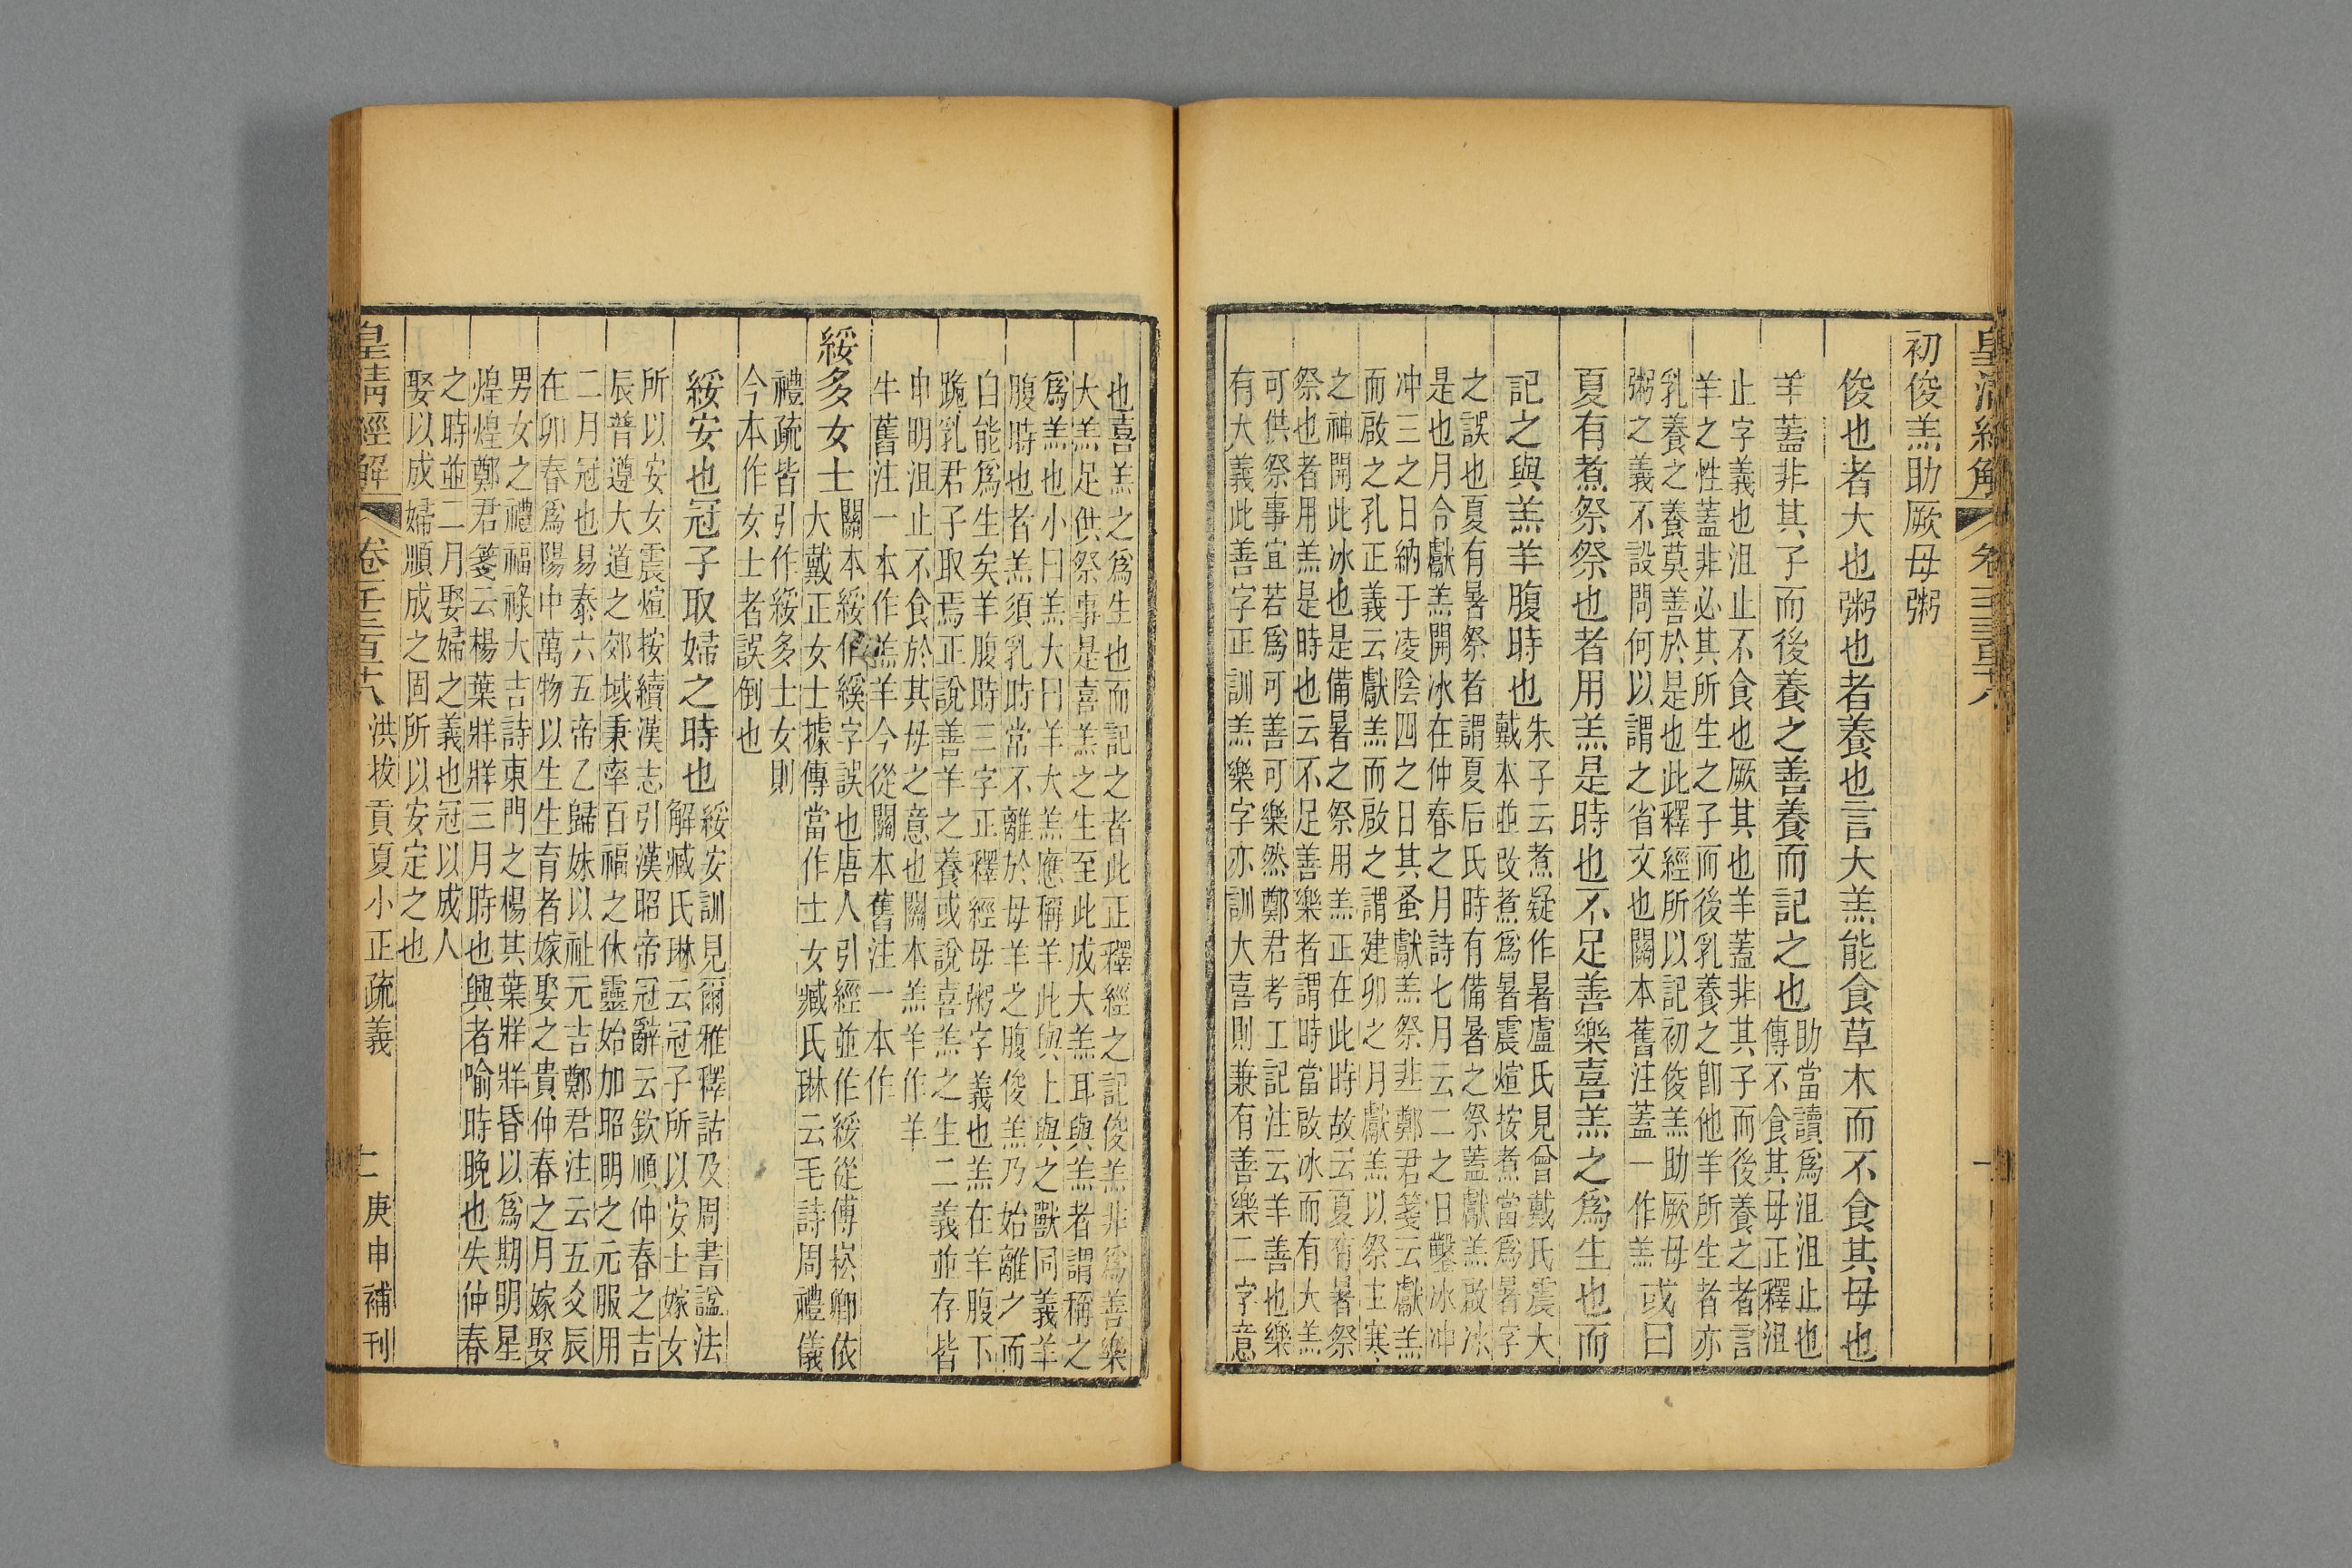 初俊羔助厥母粥
俊也者大也粥也者養也言大羔能食草木而不食其母也
羊蓋非其子而後養之善養而記之也
助當讀爲沮沮止也
傳不食其母正釋沮
止字義也沮止不食也厥其也羊蓋非其子而後養之者言
羊之性蓋非必其所生之子而後乳養之卽他羊所生者亦
乳養之養莫善於是也此釋經所以記初俊羔助厥母
粥之義不設問何以謂之省文也關本舊注蓋一作羔
或曰
夏有煮祭祭也者用羔是時也不足善樂喜羔之爲生也而
記之與羔羊腹時也
朱子云煮疑作暑盧氏見曾戴氏震大
戴本並改煮爲暑震煊按煮當爲暑字
之誤也夏有暑祭者謂夏后氏時有備暑之祭蓋獻羔啟冰
是也月令獻羔開冰在仲春之月詩七月云二之日鑿冰冲
冲三之日納于凌陰四之日其蚤獻羔祭韭鄭君箋云獻羔
而啟之孔正義云獻羔而啟之謂建卯之月獻羔以祭主寒
之神開此冰也是備暑之祭用羔正在此時故云夏有暑祭
祭也者用羔是時也云不足善樂者謂時當啟冰而有大羔
可供祭事宜若爲可善可樂然鄭君考工記注云羊善也樂
有大義此善字正訓羔樂字亦訓大喜則兼有善樂二字意
也喜羔之爲生也而記之者此正釋經之記俊羔非爲善樂
大羔足供祭事是喜羔之生至此成大羔耳與羔者謂稱之
爲羔也小曰羔大曰羊大羔應稱羊此與上與之獸同義羊
腹時也者羔須乳時常不離於母羊之腹俊羔乃始離之而
自能爲生矣羊腹時三字正釋經母粥字義也羔在羊腹下
跪乳君子取焉正說善羊之養或說喜羔之生二義並存皆
申明沮止不食於其母之意也關本羔羊作羊
牛舊注一本作羔羊今從關本舊注一本作
綏多女士
關本綏作綏字誤也唐人引經並作綏從傅崧卿依
大戴正女士據傳當作士女臧氏琳云毛詩周禮儀
禮疏皆引作綏多士女則
今本作女士者誤倒也
綏安也冠子取婦之時也
綏安訓見爾雅釋詁及周書謚法
解臧氏琳云冠子所以安士嫁女
所以安女震煊按續漢志引漢昭帝冠辭云欽順仲春之吉
辰普遵大道之郊域秉率百福之休靈始加昭明之元服用
二月冠也易泰六五帝乙歸妹以祉元吉鄭君注云五爻辰
在卯春爲陽中萬物以生生育者嫁娶之貴仲春之月嫁娶
男女之禮福祿大吉詩東門之楊其葉牂牂昏以爲期明星
煌煌鄭君箋云楊葉牂牂三月時也興者喻時晚也失仲春
之時並二月娶婦之義也冠以成人
娶以成婦順成之固所以安定之也
皇清經解
洪拔貢夏小正疏義
二
庚申補刊